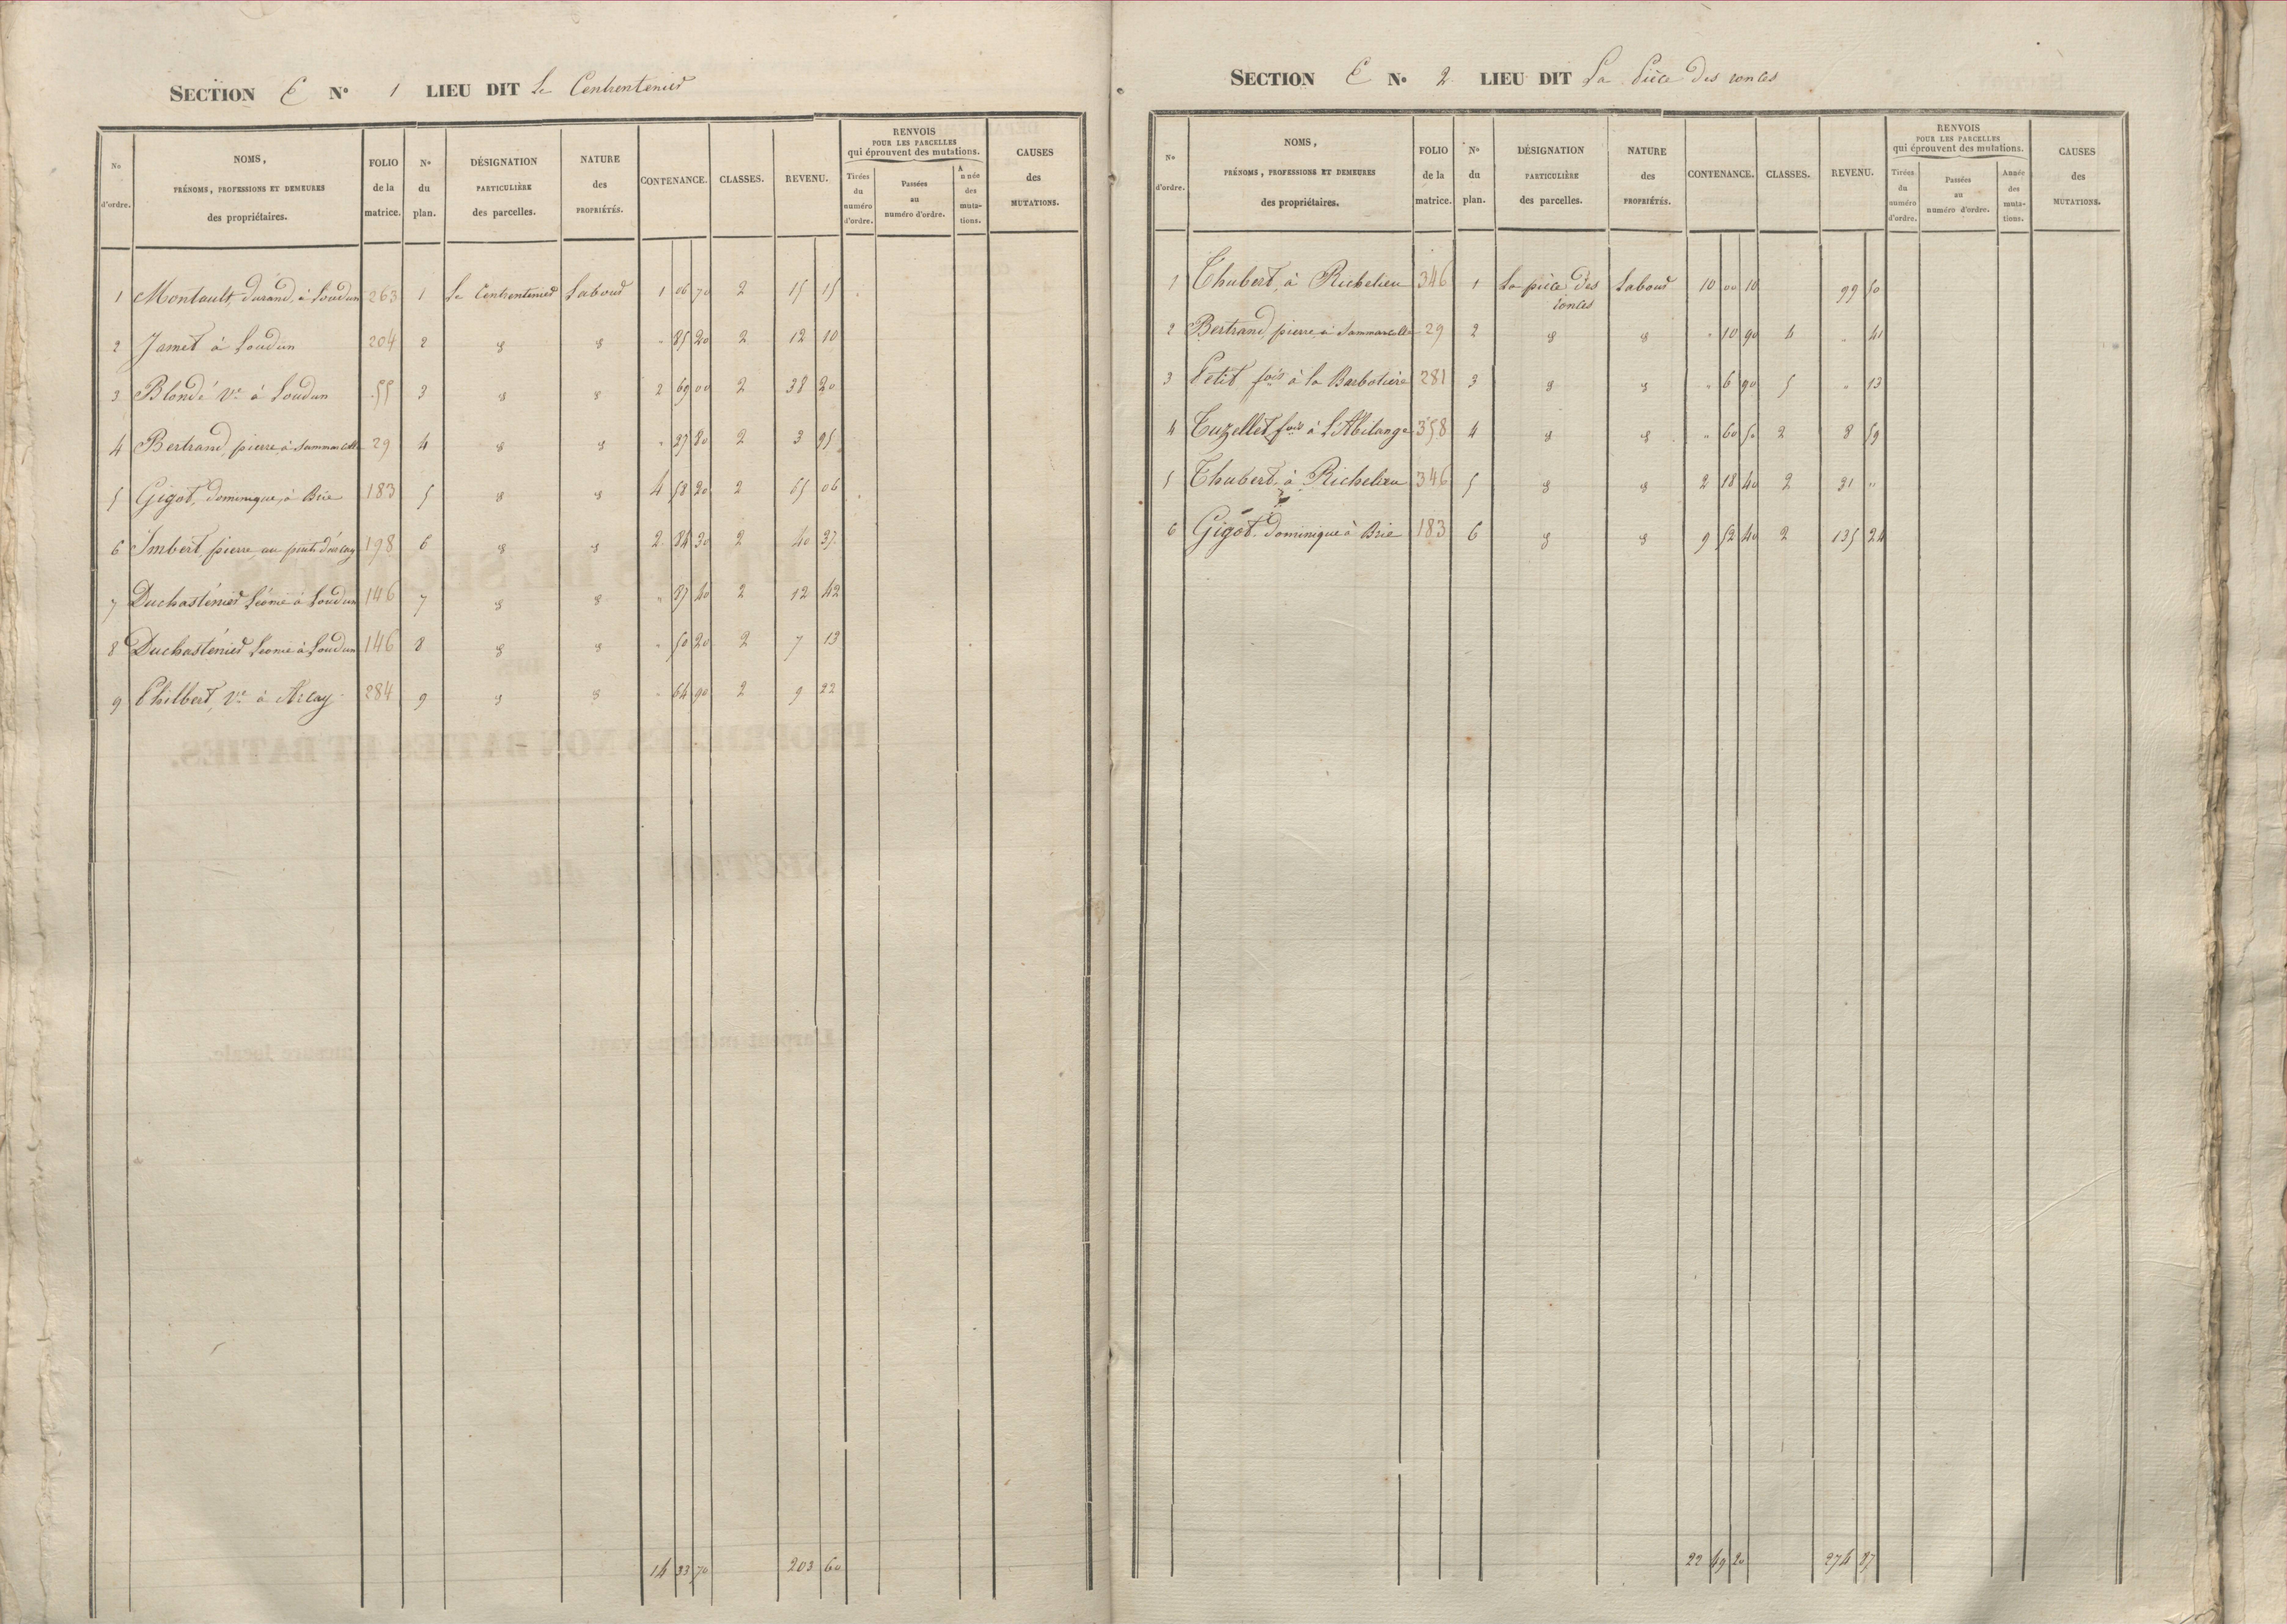 SECTION E N° 1 LIEU DIT Le Centrentenier
N° d'ordre.
NOMS, PRÉNOMS, PROFESSIONS ET DEMEURES des propriétaires.
FOLIO de la matrice.
N° du plan.
DÉSIGNATION PARTICULIÈRE des parcelles.
NATURE des PROPRIÉTÉS.
CONTENANCE.
CLASSES.
REVENU.
RENVOIS POUR LES PARCELLES qui éprouvent des mutations.
Tirées du numéro d'ordre.
Passées au numéro d'ordre.
Année des mutations.
CAUSES des MUTATIONS.
1 Montault Durand, à Loudun 263 1 Le Centrentenier Labour 1 06 70 2 15 15
2 Jamet à Loudun 204 2 " " " 85 20 2 12 10
3 Blondé Ve à Loudun 55 3 " " 2 69 00 2 38 20
4 Bertrand, pierre, à Sammarcolle 29 4 " " " 27 80 2 3 95
5 Gigot, dominique, à Brie 183 5 " " 4 58 20 2 65 06
6 Imbert, pierre, au d'arcay 198 6 " " 2 84 30 2 40 37
7 Duchastenier Léomé à Loudun 146 7 " " " 87 40 2 12 42
8 Duchastenier Léomé à Loudun 146 8 " " " 50 20 2 7 13
9 Philbert, Ve à Arcay 284 9 " " " 64 90 2 9 22
14 33 70 203 60
SECTION E N° 2 LIEU DIT La Pièce des ronces
N° d'ordre.
NOMS, PRÉNOMS, PROFESSIONS ET DEMEURES des propriétaires.
FOLIO de la matrice.
N° du plan.
DÉSIGNATION PARTICULIÈRE des parcelles.
NATURE des PROPRIÉTÉS.
CONTENANCE.
CLASSES.
REVENU.
RENVOIS POUR LES PARCELLES qui éprouvent des mutations.
Tirées du numéro d'ordre.
Passées au numéro d'ordre.
Année des mutations.
CAUSES des MUTATIONS.
1 Thubert, à Richelieu 346 1 La pièce des ronces Labour 10 00 10 99 50
2 Bertrand, pierre, à Sammarcolle 29 2 " " " 10 90 4 " 41
3 Petit fois à la Barbotière 281 3 " " " 6 90 5 " 13
4 Tuzellet, fois à L'Abilange 358 4 " " " 60 50 2 8 59
5 Thubert, à Richelieu 346 5 " " 2 18 40 2 31 "
6 Gigot, dominique à Brie 183 6 " " 9 52 40 2 135 24
22 49 20 274 87